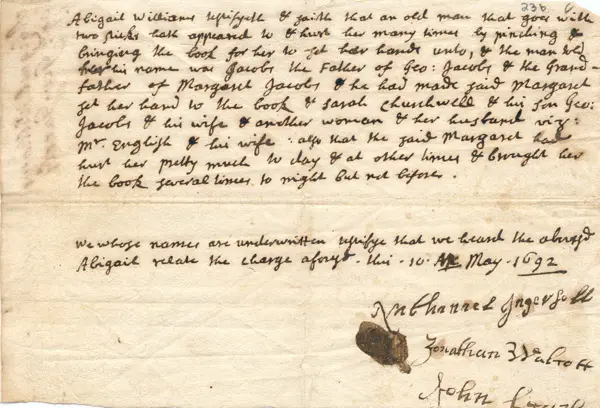 236
Abigail Williams testifyeth & saith that an old man that goes with
two sticks hath appeared to & hurt her many times by pinching &
bringing the book for her to set her hands unto, & the man told
her his name was Jacobs the Father of Geo: Jacobs & the Grand-
father of Margaret Jacobs & he had made said Margaret
set her hand to the book & Sarah Churchwell & his son Geo:
Jacobs & his wife & another woman & her husband viz:
Mr. English & his wife : also that the said Margaret had
hurt her pretty much to day & at other times & brought her
the book several times to night but not before.
We whose names are underwritten testifye that we heard the abovesd
Abigail relate the charge aforsd. this - 10. May - 1692
Nathanael Ingersoll
Jonathan Walcott
John